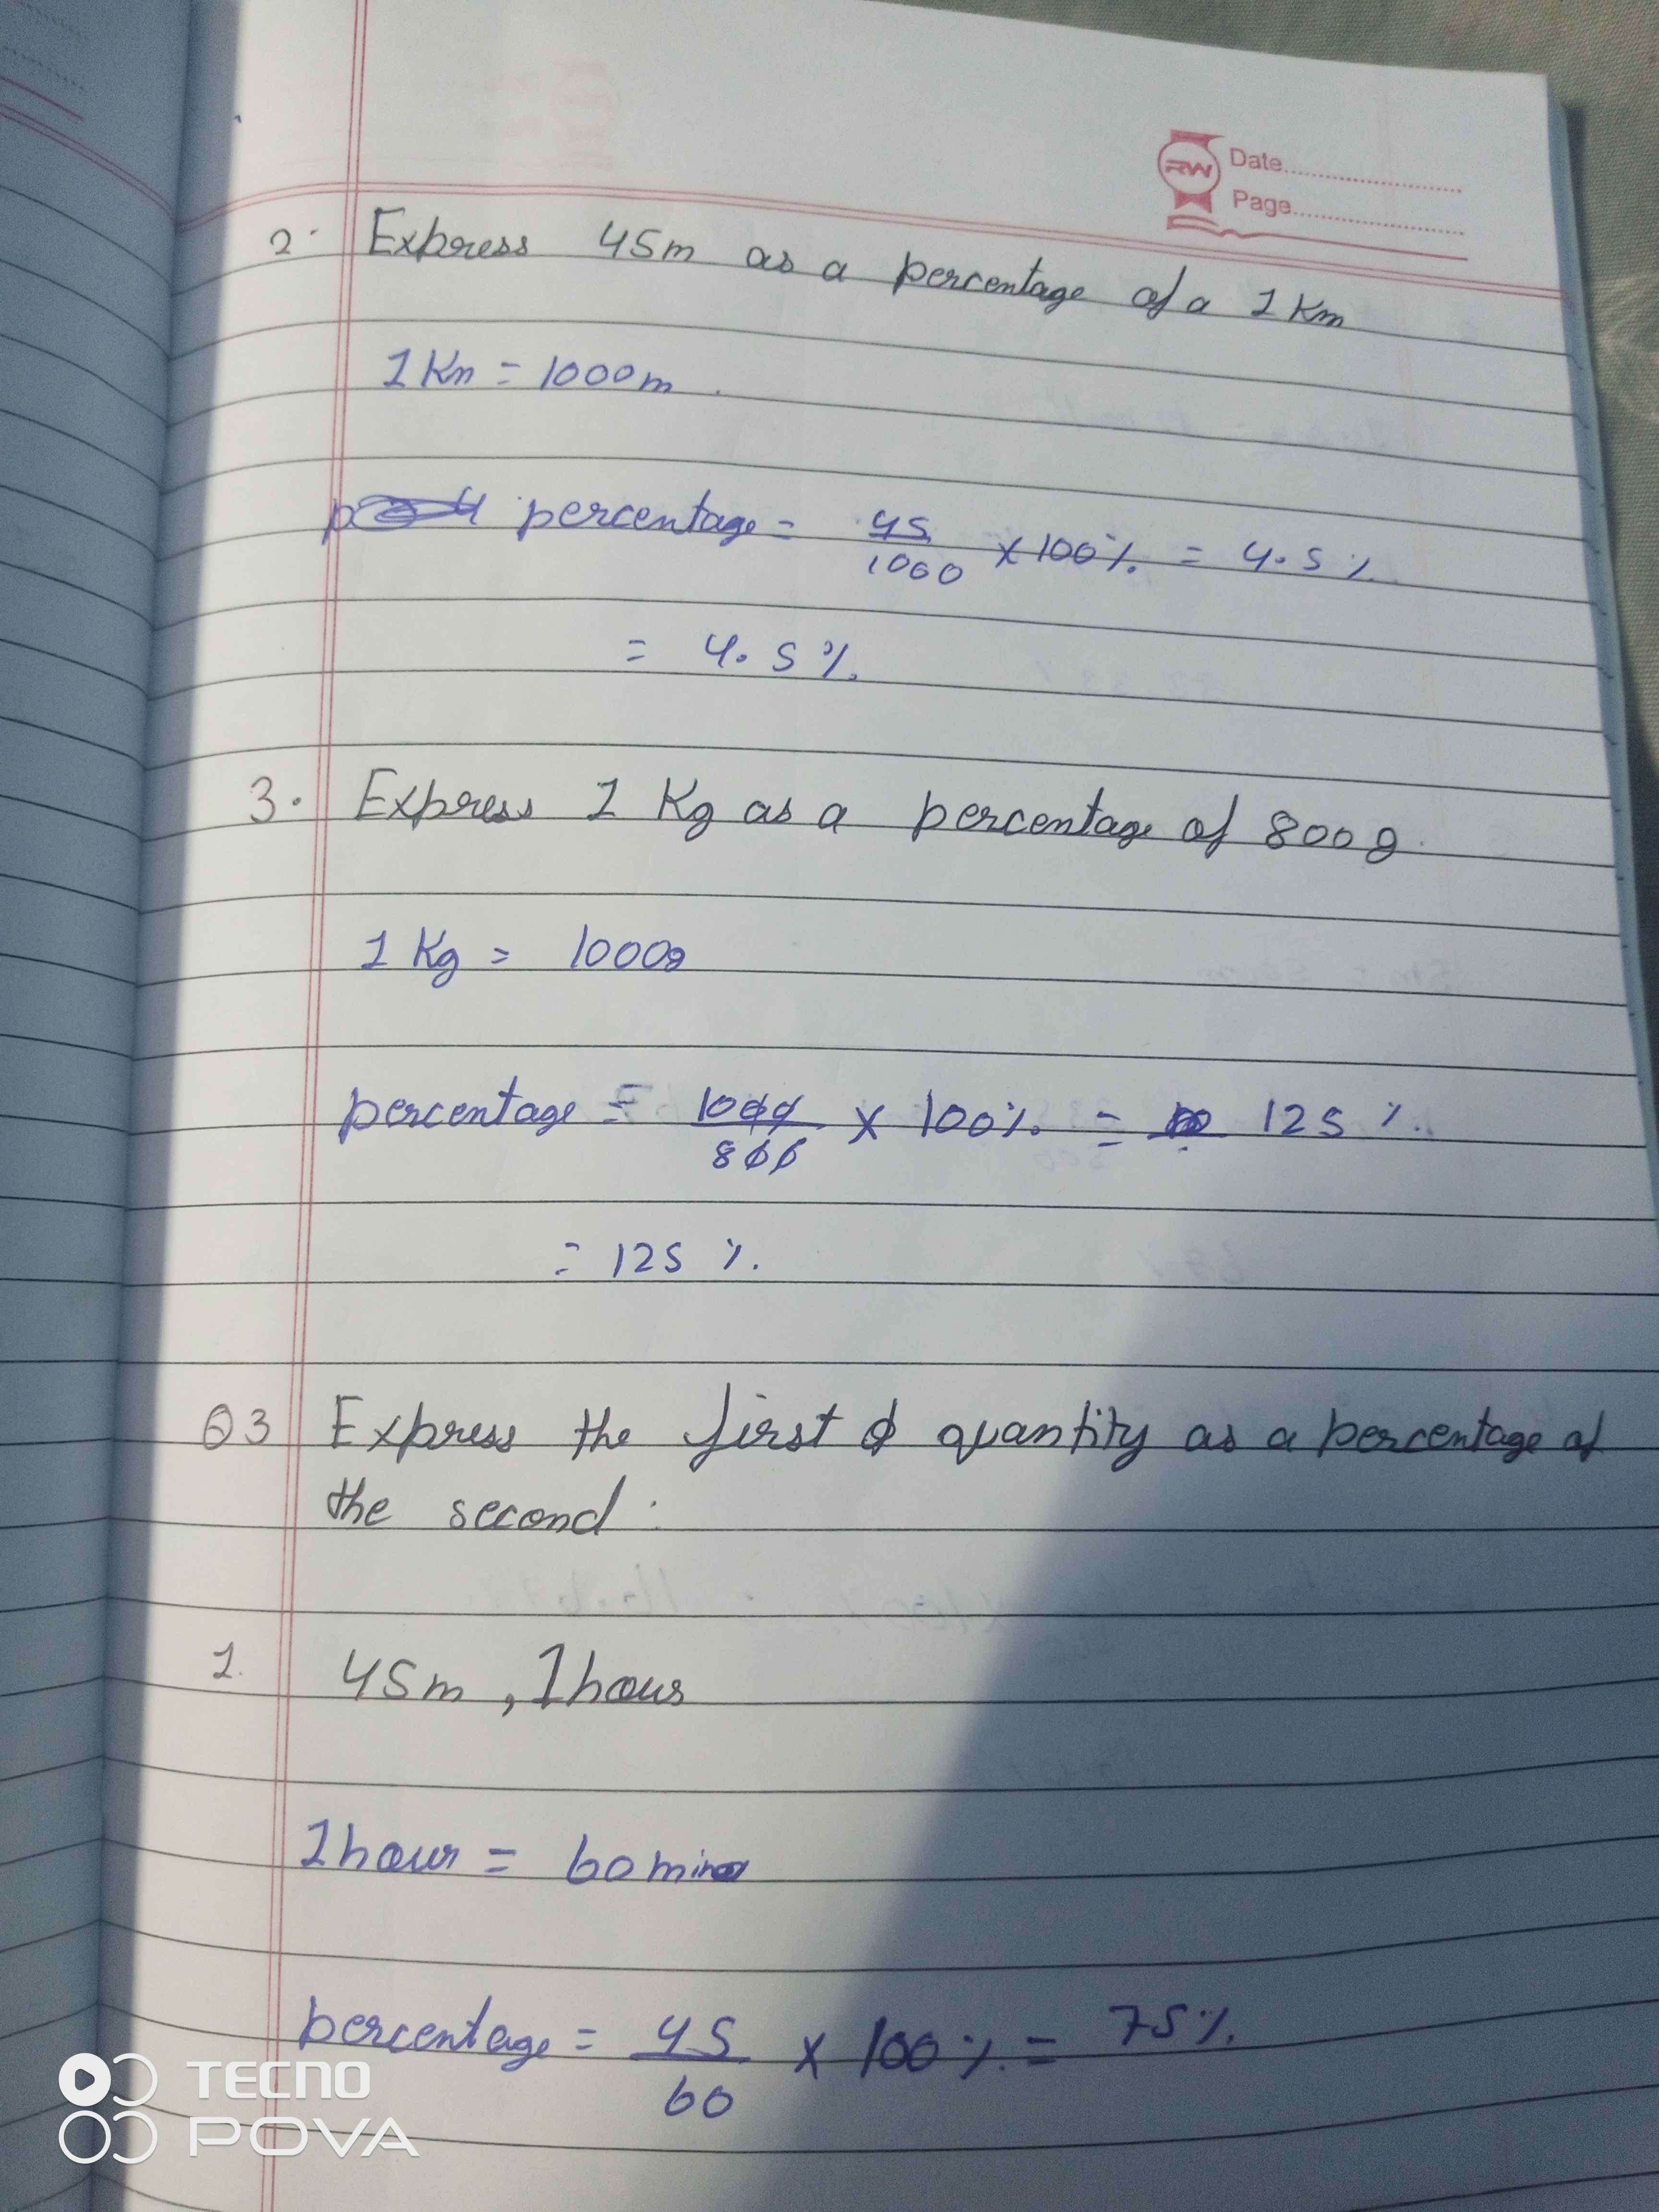 RW
Date
Page
2. Express 45m as a percentage of a 1 Km
1 Km = 1000m.
percentage = 45/1000 x 100% = 4.5%
= 4.5%.
3. Express 1 Kg as a percentage of 800g.
1 Kg = 1000g
percentage = 1000/800 x 100% = 125%.
= 125%.
Q3 Express the first quantity as a percentage of
the second :
1. 45m, 1 hour
1 hour = 60 min
percentage = 45/60 x 100% = 75%.
TECNO
POVA